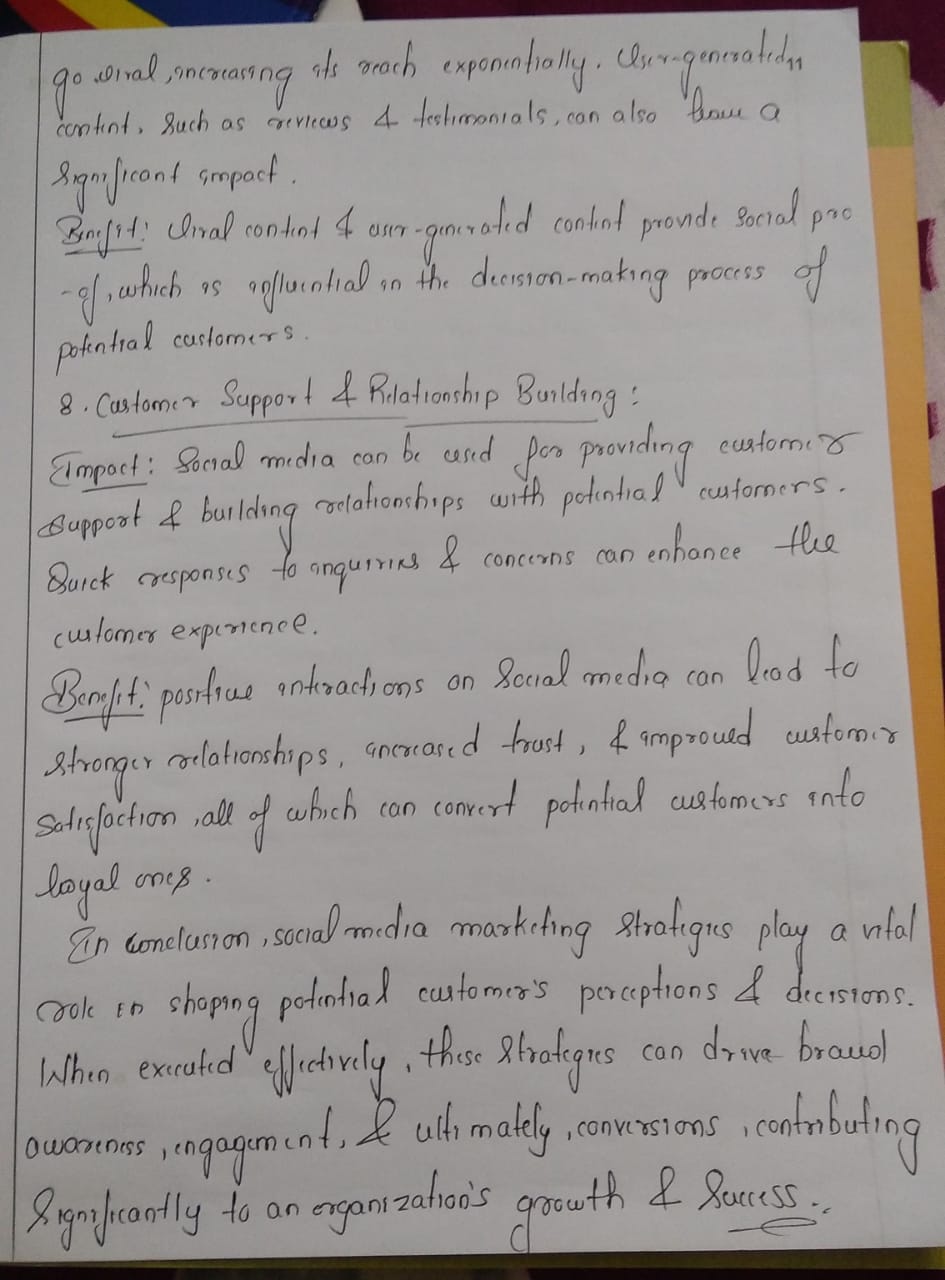 go viral, increasing its reach exponentially. User-generated
content, such as reviews & testimonials, can also have a
Significant impact.
Benefit: Viral content & user-generated content provide Social pro
-of, which is influential in the decision-making process of
potential customers.
8. Customer Support & Relationship Building:
Impact: Social media can be used for providing customer
support & building relationships with potential customers.
Quick responses to inquiries & concerns can enhance the
customer experience.
Benefit: positive interactions on Social media can lead to
stronger relationships, increased trust, & improved customer
satisfaction, all of which can convert potential customers into
loyal ones.
In conclusion, social media marketing strategies play a vital
role in shaping potential customer's perceptions & decisions.
When executed effectively, these strategies can drive brand
awareness, engagement, & ultimately, conversions, contributing
Significantly to an organization's growth & Success..